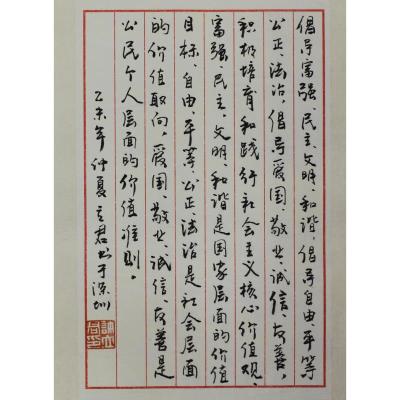 倡导富强、民主、文明、和谐，倡导自由、平等
公正、法治，倡导爱国、敬业、诚信、友善，
积极培育和践行社会主义核心价值观。
富强、民主、文明、和谐是国家层面的价值
目标，自由、平等、公正、法治是社会层面
的价值取向，爱国、敬业、诚信、友善是
公民个人层面的价值准则。
乙未年仲夏立君书于深圳